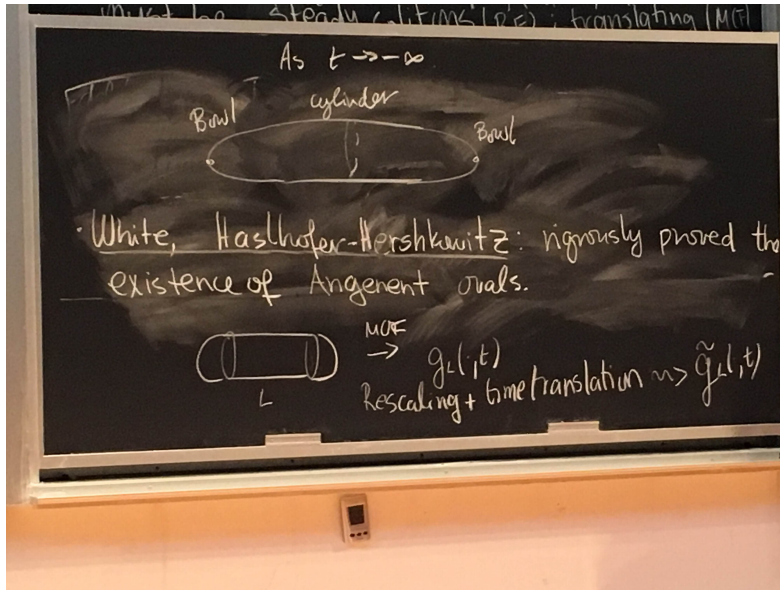 must be steady solitons (RF) ; translating (MCF)
As t → -∞
cylinder
Bowl
Bowl
· White, Haslhofer-Hershkowitz: rigrously proved the
existence of Angenent ovals.
MCF
→ g_L(·,t)
L
Rescaling + time translation ⇝ g̃_L(·,t)